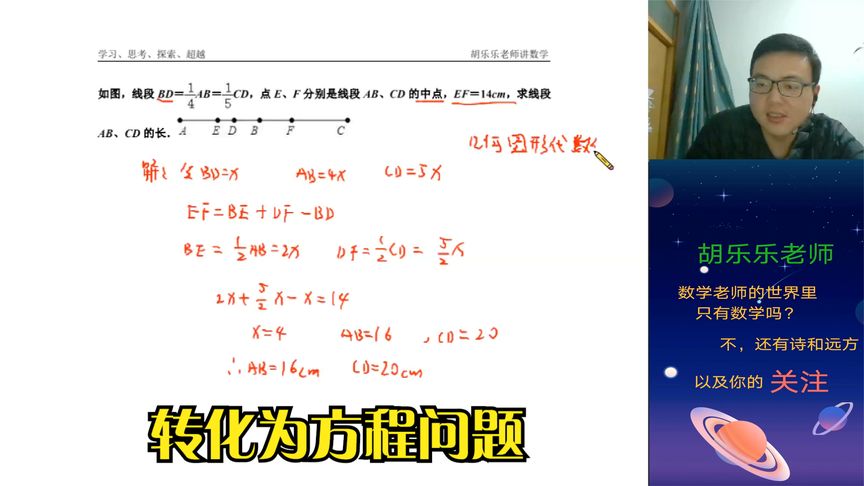 学习、思考、探索、超越
胡乐乐老师讲数学
如图，线段 BD=1/4AB=1/5CD，点 E、F 分别是线段 AB、CD 的中点，EF=14cm，求线段
AB、CD 的长．
A E D B F C
几何图形代数
解：令BD=x AB=4x CD=5x
EF=BE+DF-BD
BE=1/2AB=2x DF=1/2CD=5/2x
2x+5/2x-x=14
x=4 AB=16，CD=20
∴AB=16cm CD=20cm
转化为方程问题
胡乐乐老师
数学老师的世界里
只有数学吗？
不，还有诗和远方
以及你的 关注